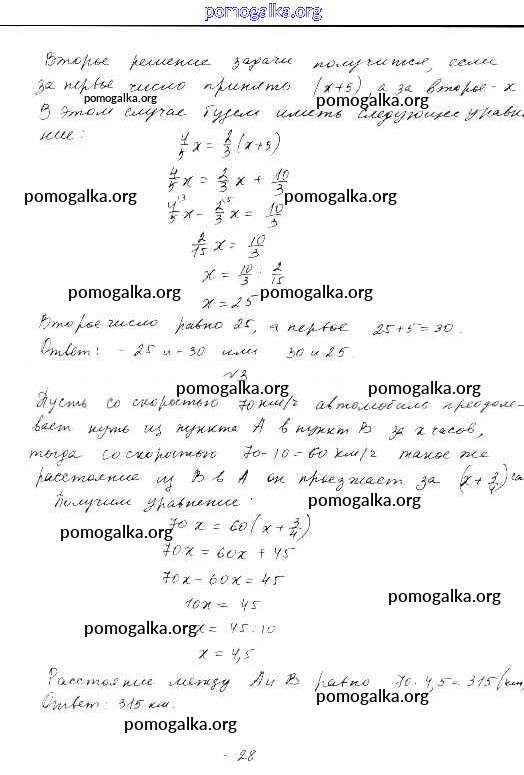 pomogalka.org
Второе решение задачи получится, если
за первое число принять (x+5), а за второе - x
pomogalka.org pomogalka.org
В этом случае будем иметь следующее уравне-
ние:
4/5 x = 2/3 (x+5)
4/5 x = 2/3 x + 10/3
pomogalka.org pomogalka.org
4/5 x - 2/3 x = 10/3
2/15 x = 10/3
x = 10/3 : 2/15
pomogalka.org pomogalka.org
x = 25
Второе число равно 25, а первое 25+5=30.
Ответ: - 25 и -30 или 30 и 25.
№3
pomogalka.org pomogalka.org
Пусть со скоростью 70 км/ч автомобиль преодоле-
вает путь из пункта А в пункт В за x часов,
тогда со скоростью 70-10=60 км/ч такое же
расстояние из В в А он проезжает за (x + 3/4) ча
Получим уравнение: pomogalka.org
70x = 60(x + 3/4)
pomogalka.org
70x = 60x + 45
70x - 60x = 45
10x = 45
pomogalka.org
pomogalka.org x = 45 : 10
x = 4,5
Расстояние между А и В равно 70 · 4,5 = 315 (км
pomogalka.org
Ответ: 315 км.
pomogalka.org
- 28